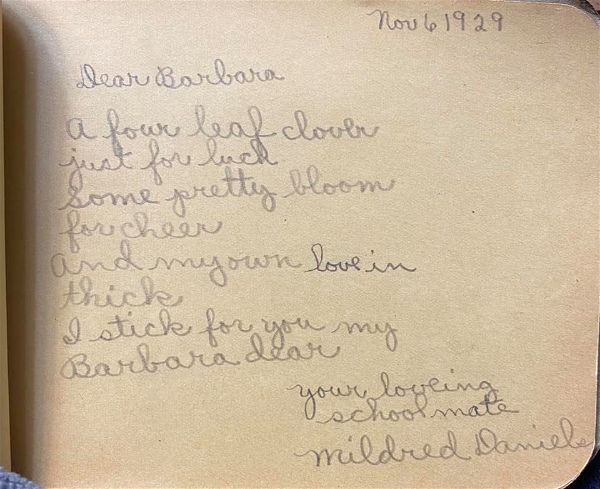 Nov 6 1929
Dear Barbara
A four leaf clover
just for luck
Some pretty bloom
for cheer
And my own love in
thick
I stick for you my
Barbara dear
your loveing
schoolmate
Mildred Daniels